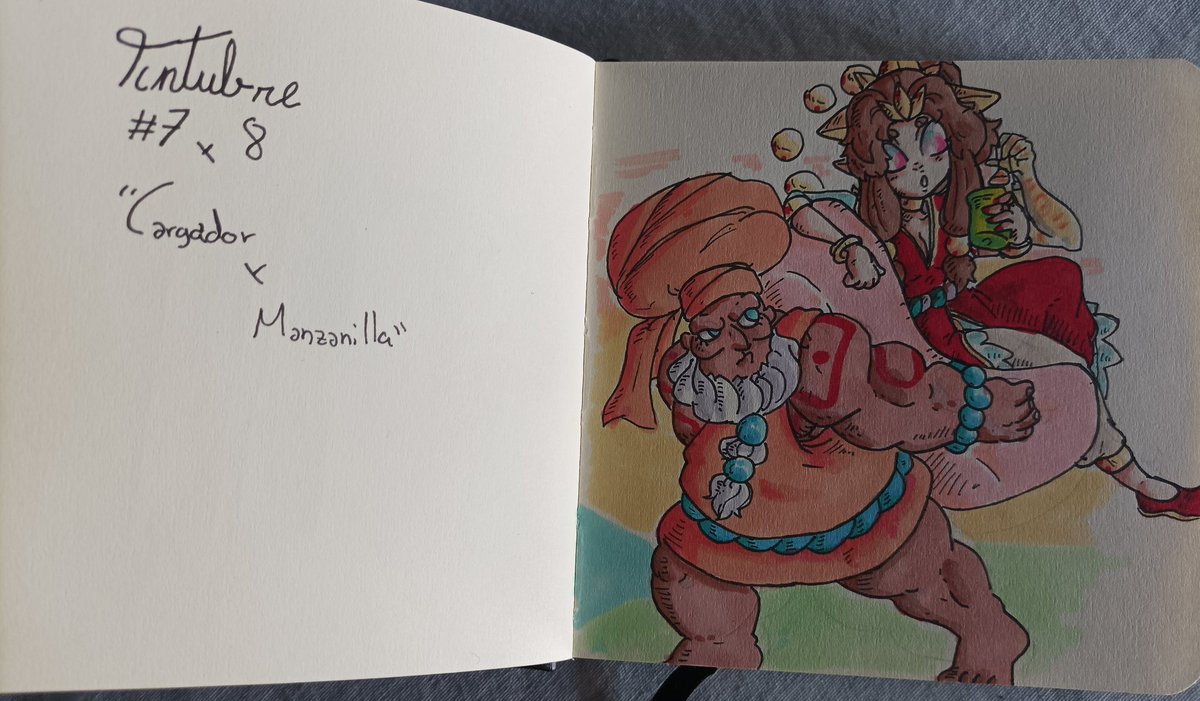 Tintubre
#7 x 8
"Cargador
x
Manzanilla"